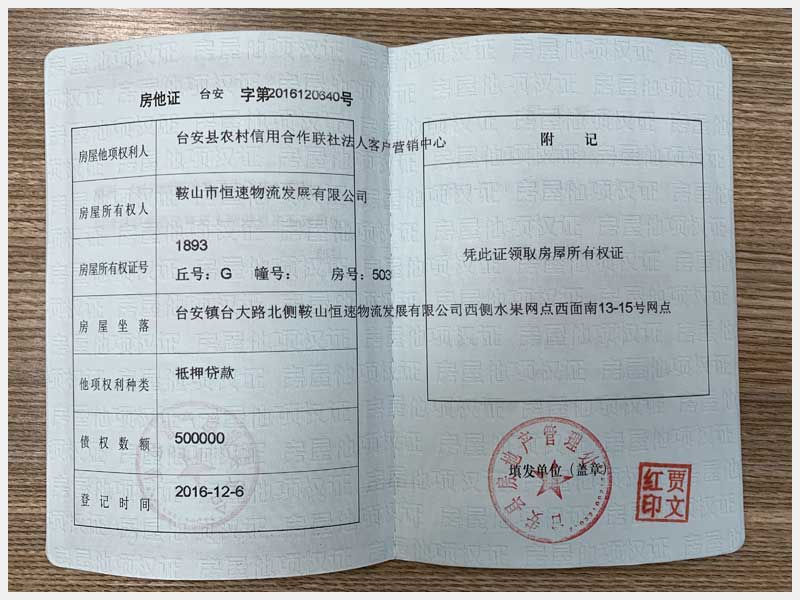 房他证 台安 字第2016120640号
房屋他项权利人 台安县农村信用合作联社法人客户营销中心
房屋所有权人 鞍山市恒速物流发展有限公司
房屋所有权证号 1893
丘号：G 幢号： 房号：503
房屋坐落 台安镇台大路北侧鞍山恒速物流发展有限公司西侧水果网点西面南13-15号网点
他项权利种类 抵押贷款
债权数额 500000
登记时间 2016-12-6
附记
凭此证领取房屋所有权证
台安县房地产管理处
填发单位（盖章）
贾文红印